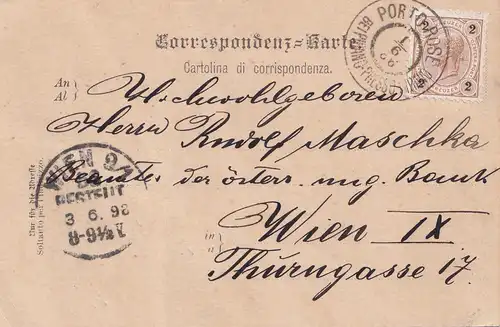 Correspondenz-Karte
Cartolina di corrispondenza.
PORTOROSE
2 2
KREUZER
An
Al
Hochwohlgeboren
Herrn Rudolf Maschka
Beamter der österr. ung. Bank
in
a
Wien IX
Thurngasse 17.
WIEN 9/1
BESTELLT
3 6. 98
Nur für die Adresse
Soltanto per l'indirizzo.